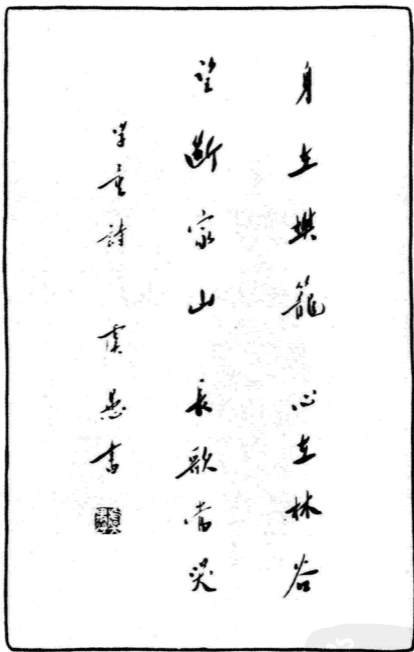 身在樊籠 心在林谷
望斷家山 長歌當哭
詩 虞愚書